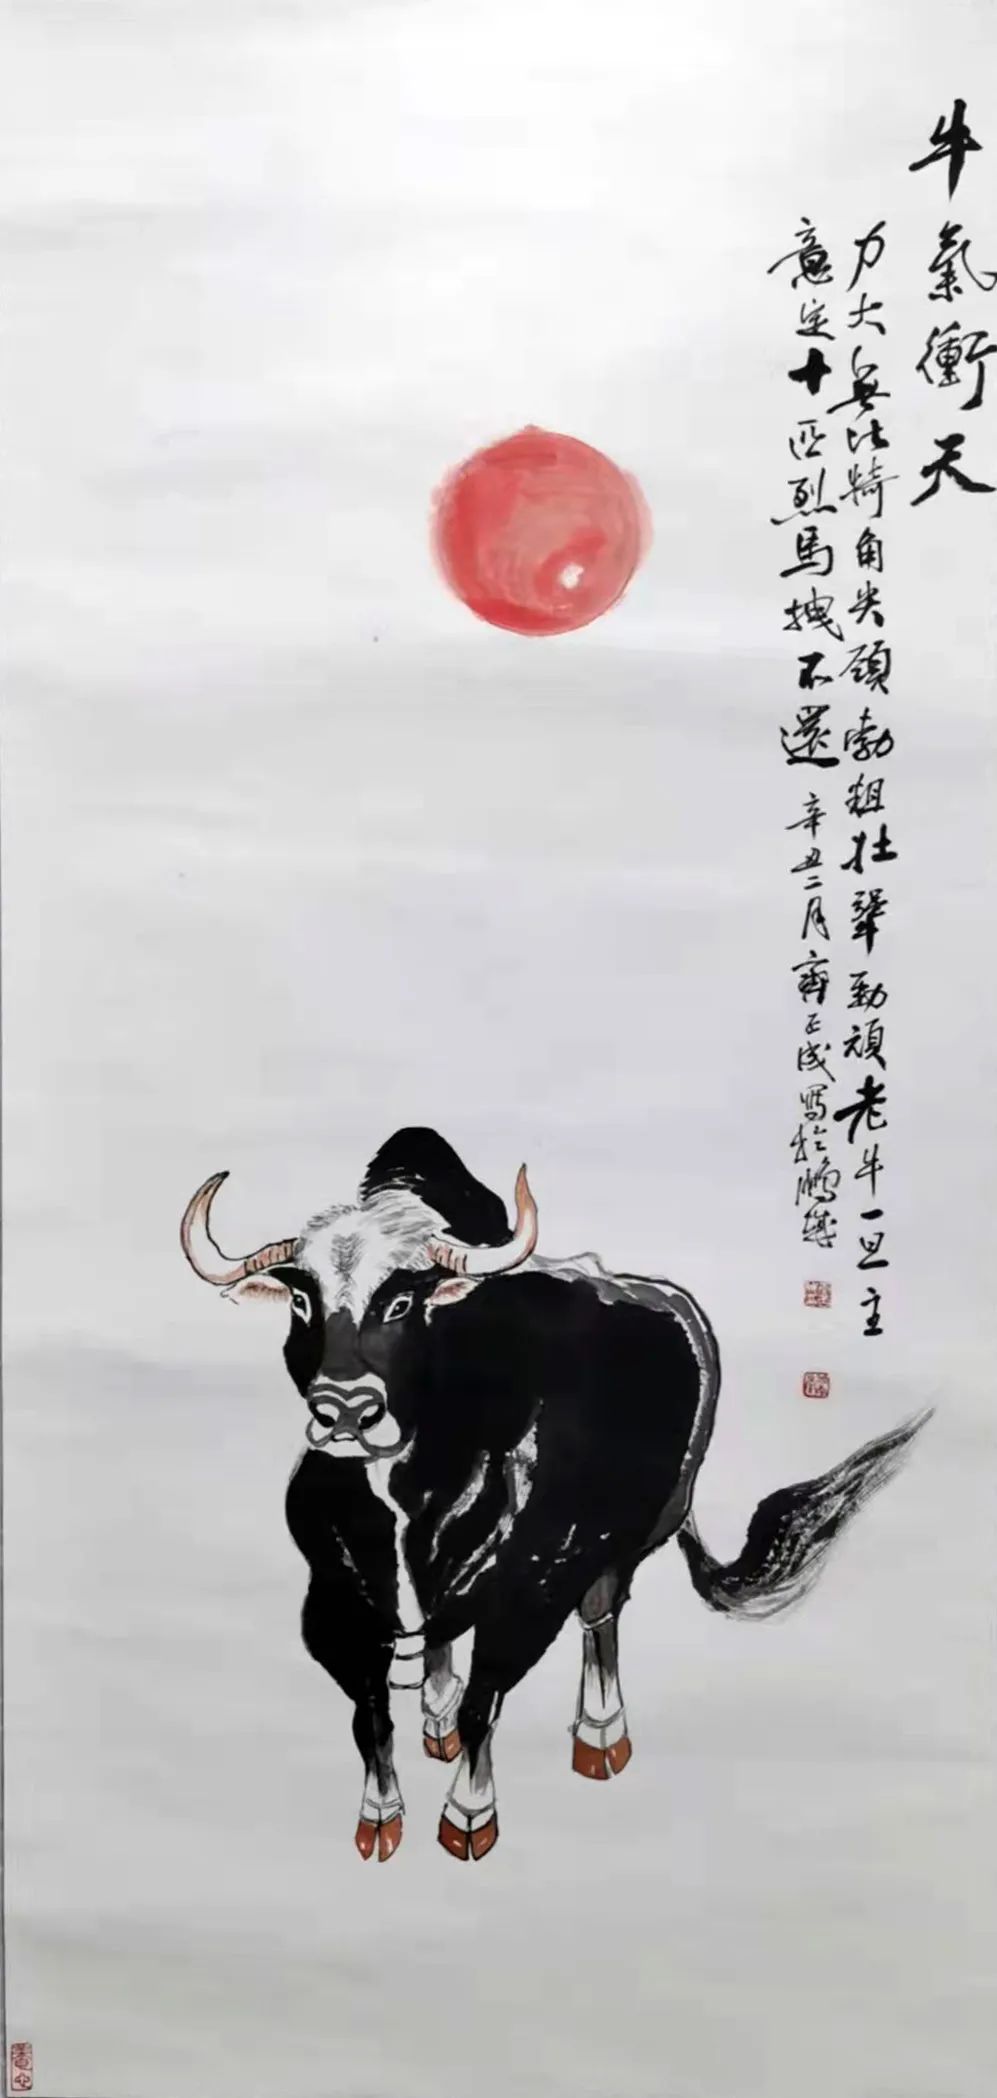 牛氣衝天
力大無比犄角尖頸勃粗壯犟勁頑老牛一旦主
意定十匹烈馬拽不還 辛丑二月齊正成寫於鵬城